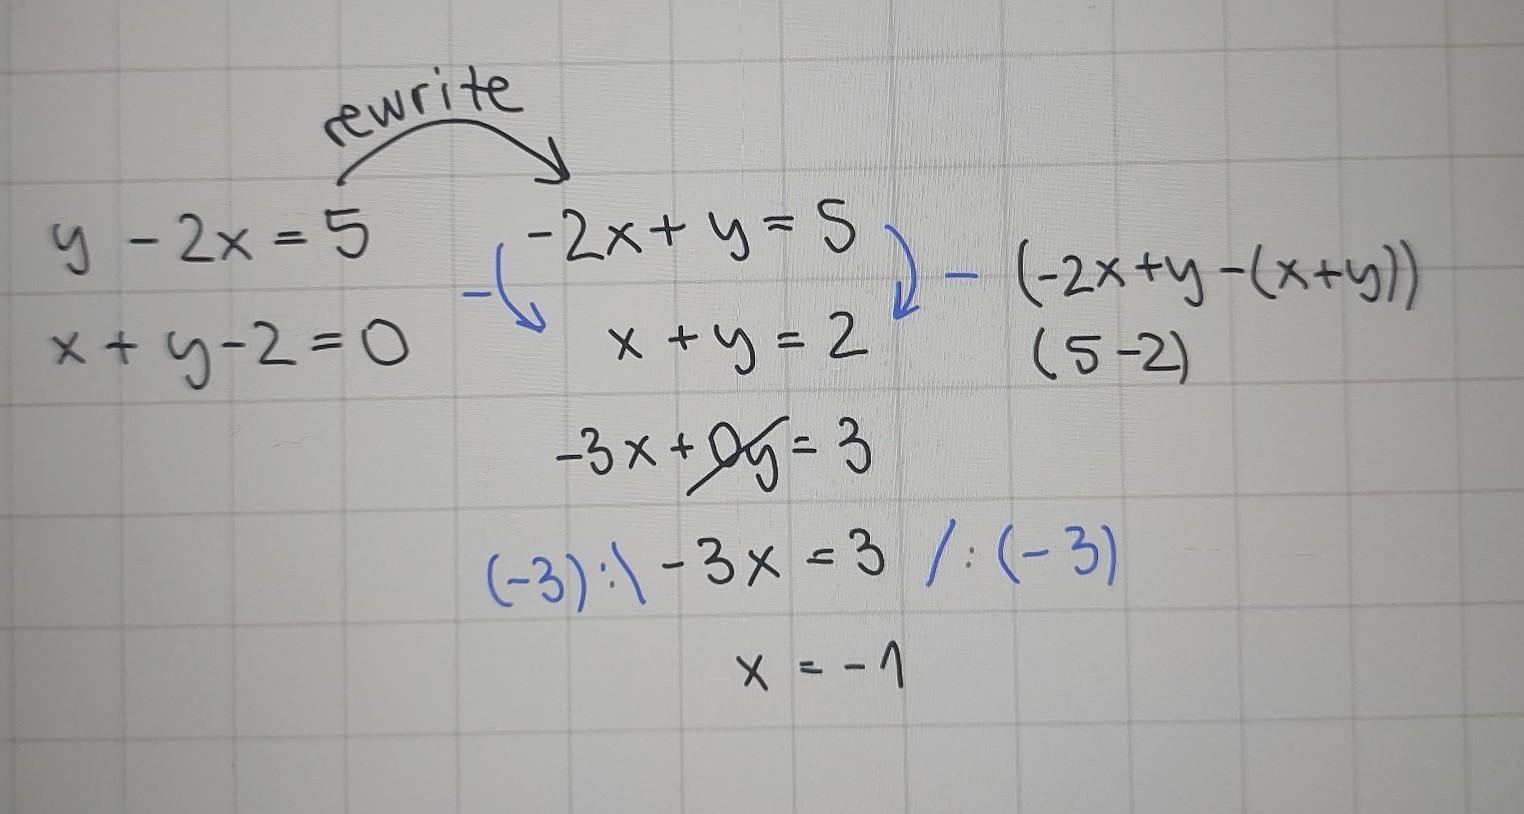 rewrite
y - 2x = 5
-2x + y = 5
- (-2x+y-(x+y))
-
x + y - 2 = 0
x + y = 2
(5-2)
-3x + 0y = 3
(-3):\ -3x = 3 /:(-3)
x = -1